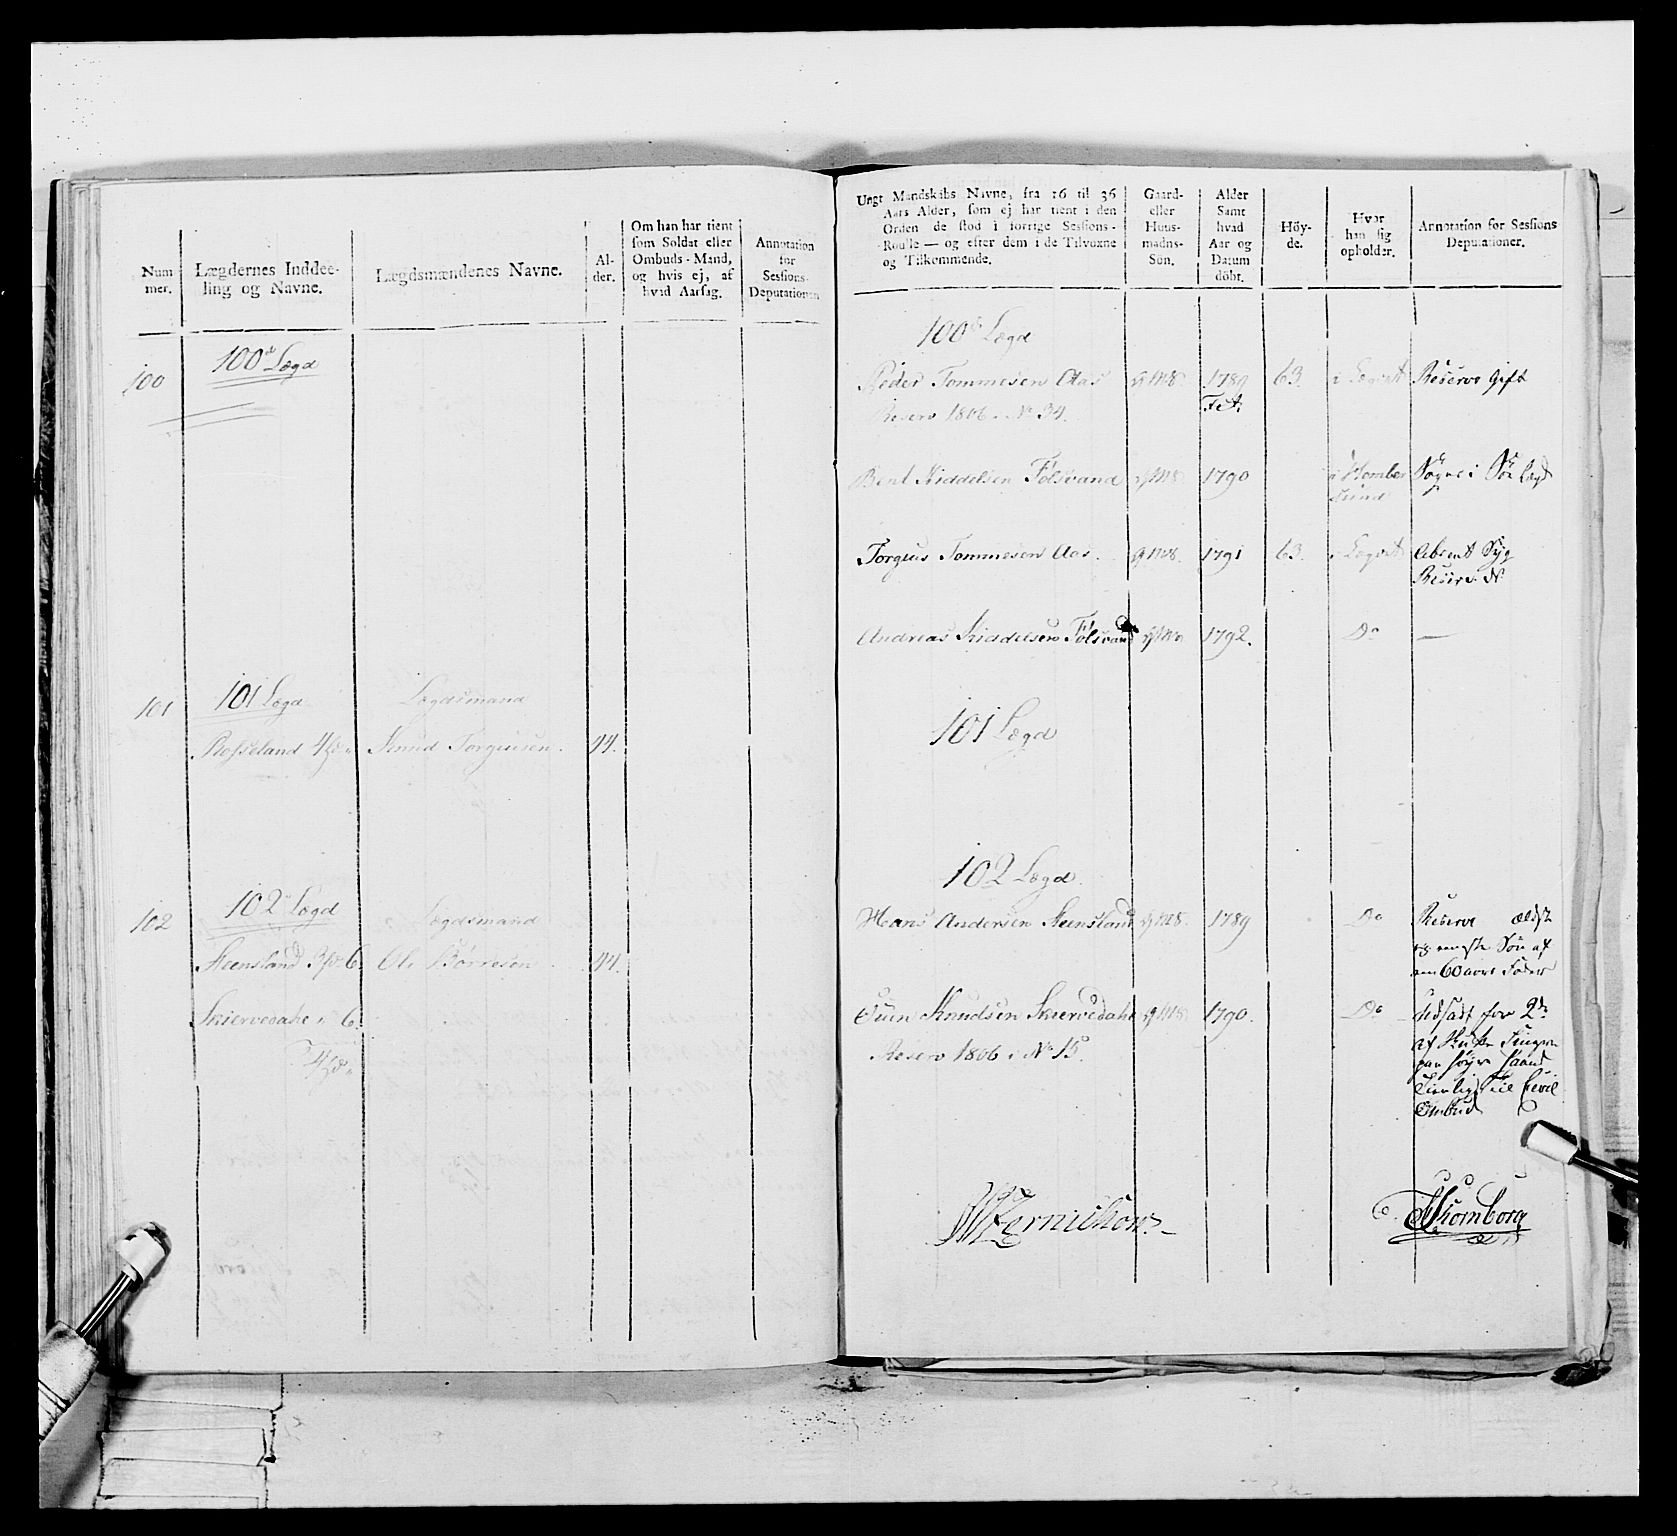 Num
mer.
Lægdernes Inddee-
ling og Navne.
Lægdsmændenes Navne.
Al-
der.
Om han har tient
som Soldat eller
Ombuds-Mand,
og hvis ej, af
hvad Aarsag.
Annotation
for
Sessions-
Deputationen
100
100d Lægd
101
101 Lægd
Lægdsmand
Rosseland
Knud Torgiusen.
44.
102
102d Lægd
Lægdsmand
Steensland
6
Ole Børresen
44.
Skiervedahl
6.
Ungt Mandskabs Navne, fra 16 til 36
Aars Alder, som ej har tient i den
Orden de stod i forrige Sessions-
Roulle — og efter dem i de Tilvoxne
og Tilkommende.
Gaard-
eller
Huus-
mands-
Sön.
Alder
Samt
hvad
Aar og
Datum
döbt.
Höy-
de.
Hvor
han sig
opholder.
Annotation for Sessions
Deputationer.
100d Lægd
Peder Tommesen Aas
1789
63.
i Lægdet
Reserve Gift
Reserv 1806. No 34.
Bent Kiddelsen Følsvand
1790
Søgnes i
Torgius Tommesen Aas.
1791
63.
i Lægdet
Absent Syg
Andreas Kiddelsen Følsvand
1792.
Do
—
101 Lægd
102 Lægd
Hans Andersen Steensland
1789
Do
Reserve ældst
og eneste Søn af
en 60 aars Fader
Suen Knudsen Skiervedahl
1790.
Do
Udsadt for 2de
Reserv 1806. No 15.
af
Finger
paa høyre Haand
tienlig til Civil
Ombud